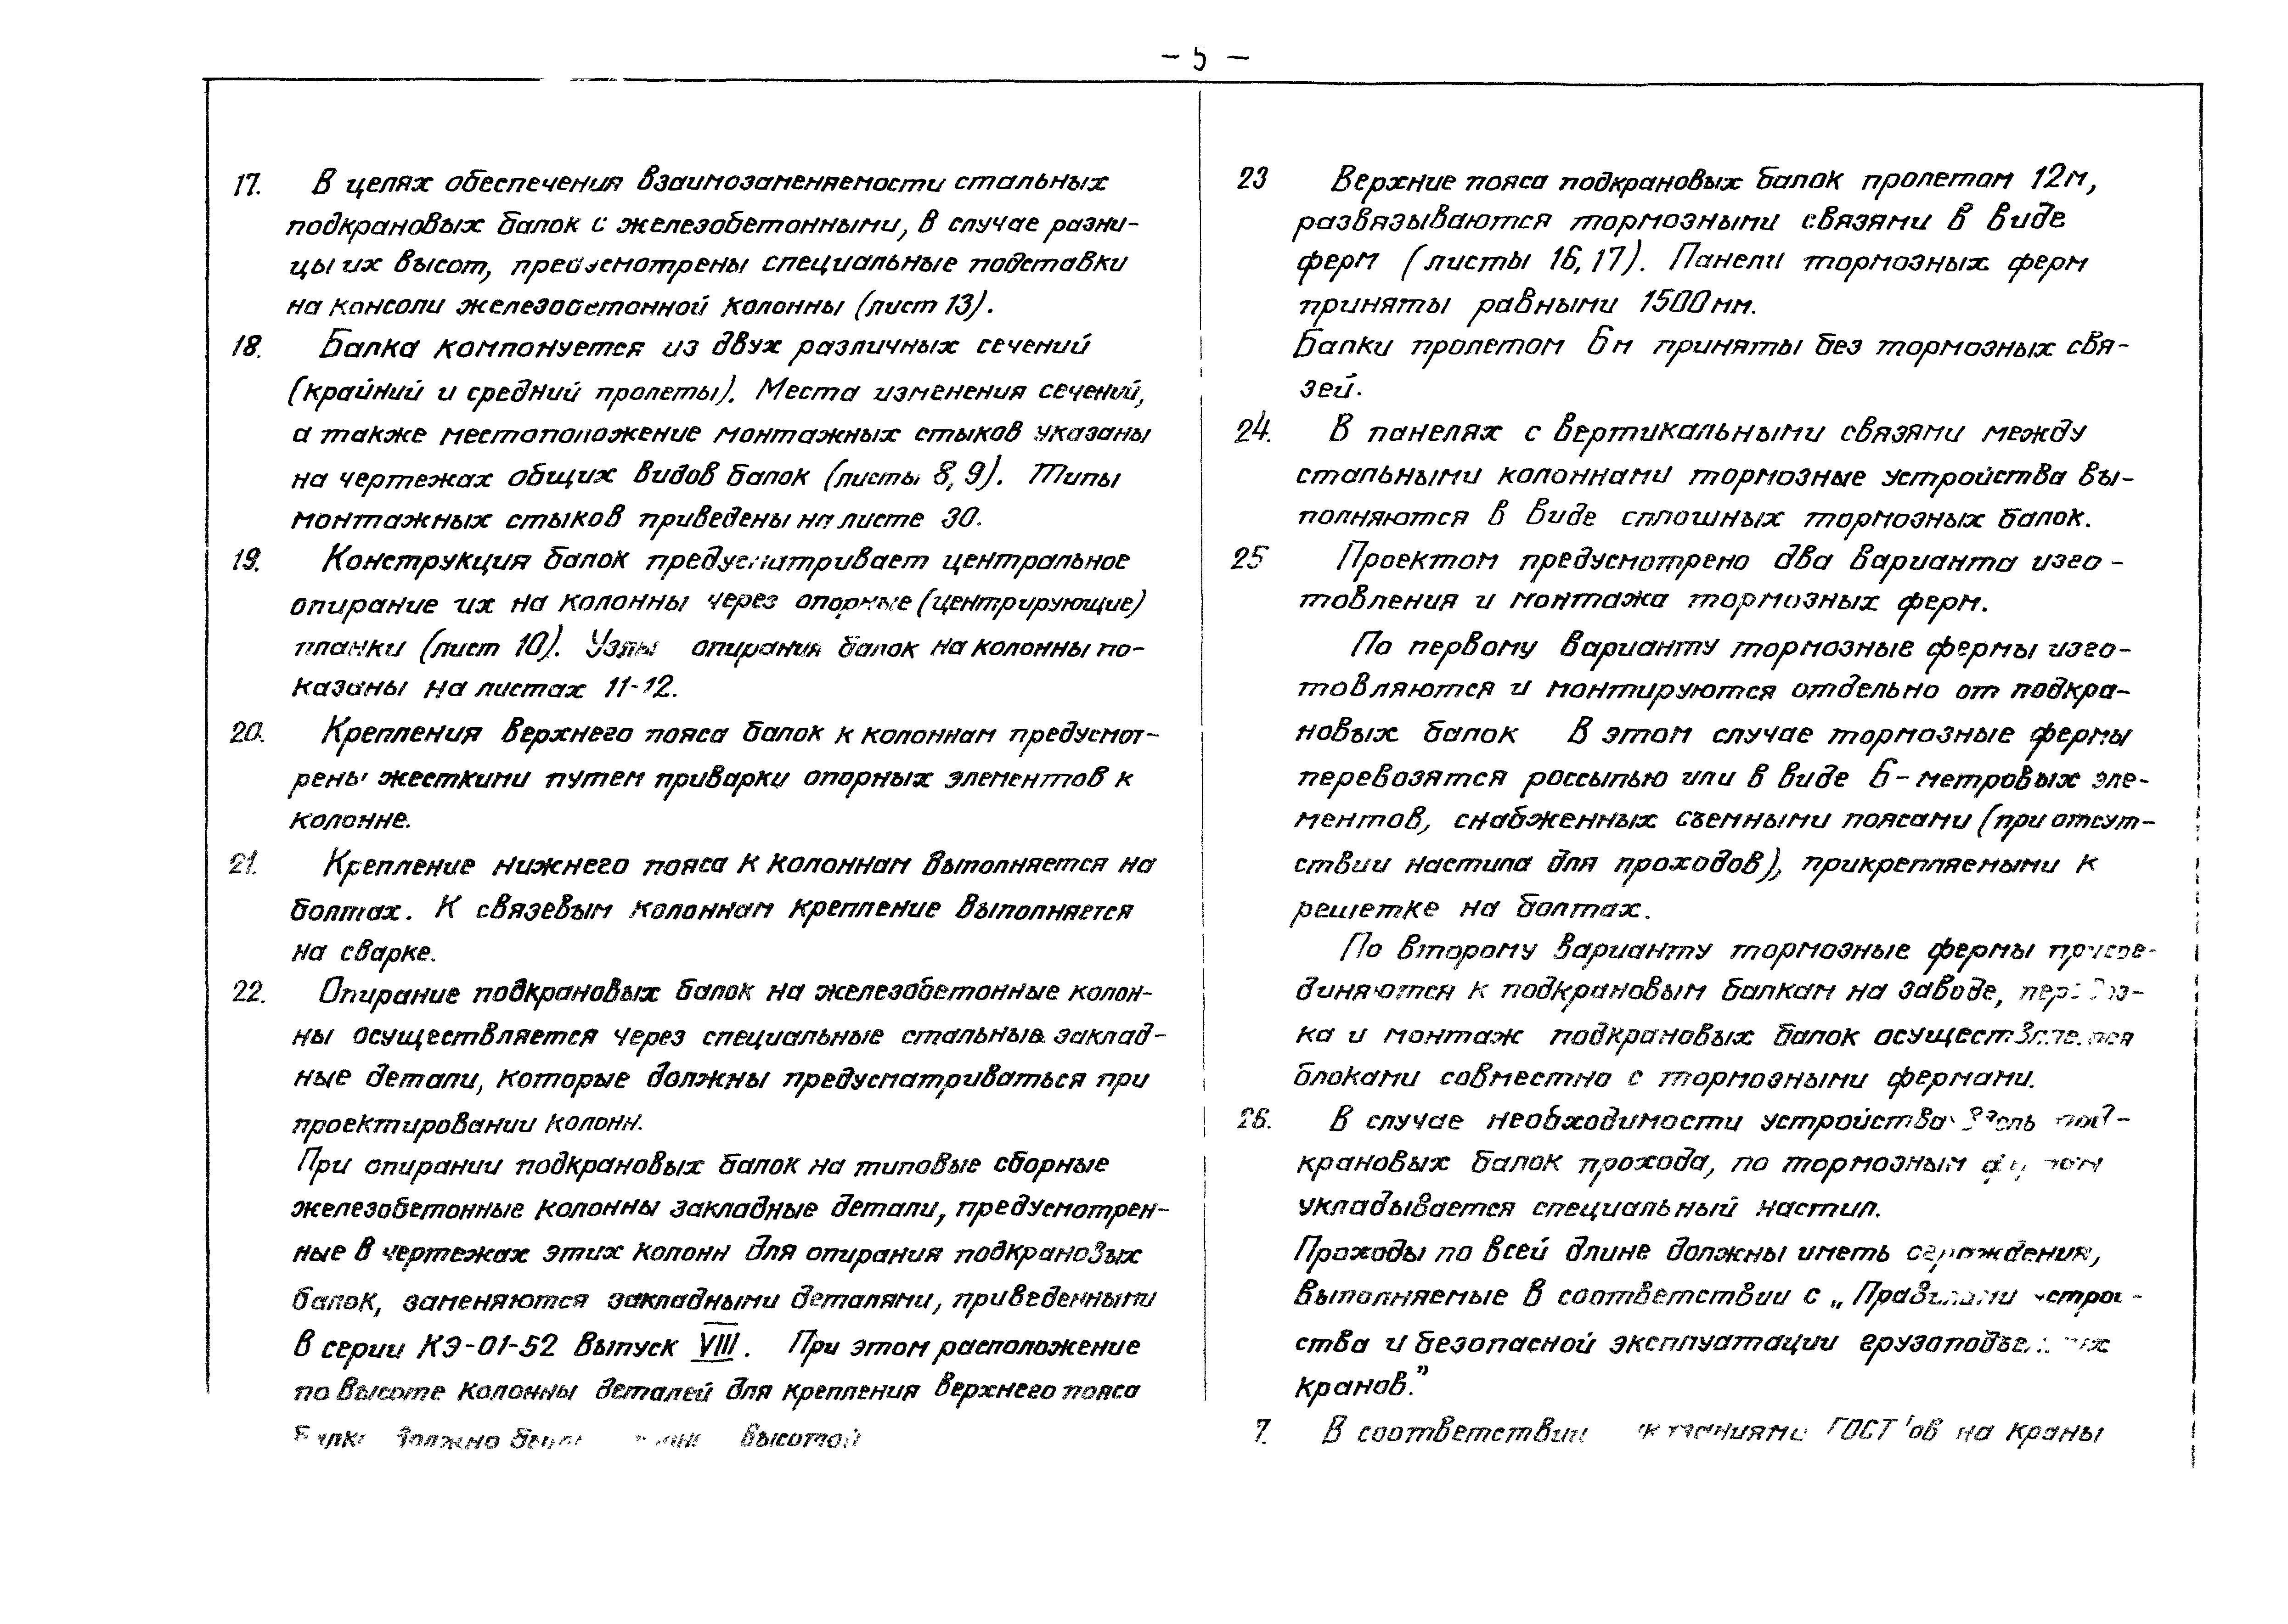 – 5 –
17. В целях обеспечения взаимозаменяемости стальных
подкрановых балок с железобетонными, в случае разни-
цы их высот, предусмотрены специальные подставки
на консоли железобетонной колонны (лист 13).
18. Балка компонуется из двух различных сечений
(крайний и средний пролеты). Места изменения сечений,
а также местоположение монтажных стыков указаны
на чертежах общих видов балок (листы 8, 9). Типы
монтажных стыков приведены на листе 30.
19. Конструкция балок предусматривает центральное
опирание их на колонны через опорные (центрирующие)
планки (лист 10). Узлы опирания балок на колонны по-
казаны на листах 11-12.
20. Крепления верхнего пояса балок к колоннам предусмот-
рены жесткими путем приварки опорных элементов к
колонне.
21. Крепление нижнего пояса к колоннам выполняется на
болтах. К связевым колоннам крепление выполняется
на сварке.
22. Опирание подкрановых балок на железобетонные колон-
ны осуществляется через специальные стальные заклад-
ные детали, которые должны предусматриваться при
проектировании колонн.
При опирании подкрановых балок на типовые сборные
железобетонные колонны закладные детали, предусмотрен-
ные в чертежах этих колонн для опирания подкрановых
балок, заменяются закладными деталями, приведенными
в серии КЭ-01-52 выпуск VIII. При этом расположение
по высоте колонны деталей для крепления верхнего пояса
должно высотой
23 Верхние пояса подкрановых балок пролетом 12м,
развязываются тормозными связями в виде
ферм (листы 16, 17). Панели тормозных ферм
приняты равными 1500мм.
Балки пролетом 6м приняты без тормозных свя-
зей.
24. В панелях с вертикальными связями между
стальными колоннами тормозные устройства вы-
полняются в виде сплошных тормозных балок.
25 Проектом предусмотрено два варианта изго-
товления и монтажа тормозных ферм.
По первому варианту тормозные фермы изго-
товляются и монтируются отдельно от подкра-
новых балок В этом случае тормозные фермы
перевозятся россыпью или в виде 6-метровых эле-
ментов, снабженных съемными поясами (при отсут-
ствии настила для проходов), прикрепляемыми к
решетке на болтах.
По второму варианту тормозные фермы присое-
диняются к подкрановым балкам на заводе, перевоз-
ка и монтаж подкрановых балок осуществляется
блоками совместно с тормозными фермами.
26. В случае необходимости устройства вдоль под-
крановых балок прохода, по тормозным фермам
укладывается специальный настил.
Проходы по всей длине должны иметь ограждения,
выполняемые в соответствии с „Правилами устрой-
ства и безопасной эксплуатации грузоподъемных
кранов.”
7. В соответствии указаниями ГОСТ'ов на краны